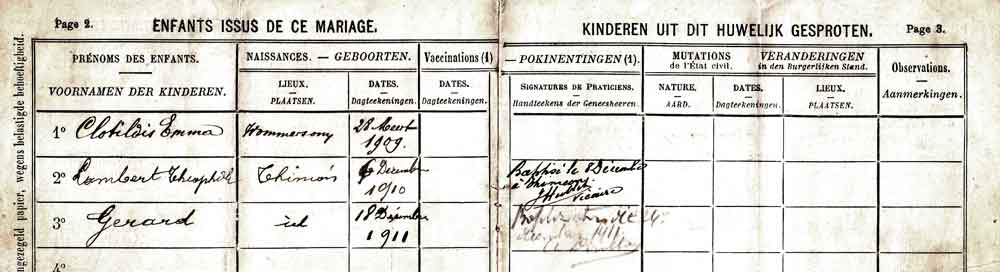 Page 2. ENFANTS ISSUS DE CE MARIAGE.
KINDEREN UIT DIT HUWELIJK GESPROTEN. Page 3.
ngezegeld papier, wegens belastigde behoeftigheid.
PRÉNOMS DES ENFANTS.
VOORNAMEN DER KINDEREN.
NAISSANCES. — GEBOORTEN.
LIEUX.
PLAATSEN.
DATES.
Dagteekeningen.
Vaccinations (1)
DATES.
Dagteekeningen.
— POKINENTINGEN (1).
SIGNATURES DE PRATICIENS.
Handteekens der Geneesheeren.
MUTATIONS VERANDERINGEN
de l'État civil. in den Burgerlijken Stand.
NATURE.
AARD.
DATES.
Dagteekeningen.
LIEUX.
PLAATSEN.
Observations.
Aanmerkingen.
1º Clotildis Emma 28 Meert
1909.
2º Lambert Theophile Thimois 6 Décembre
1910
le 8 Décembre
à
Vicaire
3º Gerard id 18 Décembre
1911
1911
4º